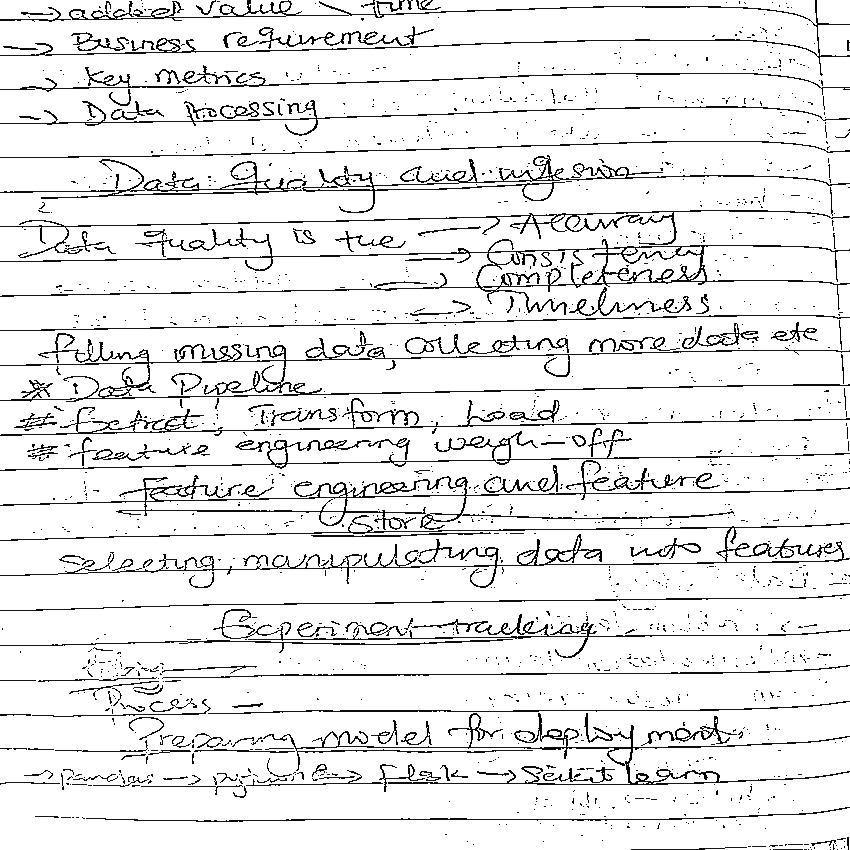 → added value \ time
→ Business requirement
→ Key metrics
→ Data Processing
Data Quality and ingesion
Data quality is the → Accuracy
→ Consistency
→ Completeness
→ Timeliness
filling missing data, collecting more data etc
* Data Pipeline
# Extract, Transform, Load
# feature engineering weigh-off
feature engineering and feature
store
selecting, manipulating data into features
Experiment tracking
Process —
Preparing model for deployment
→ pandas → → flask → Scikit learn